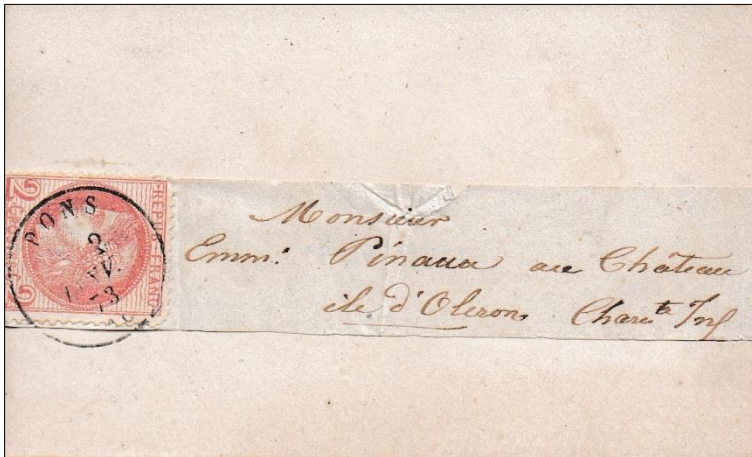 REPUB FRANC
2
2
PONS
2
73
Monsieur
Emm: Pinaua au Château
ile d'Oleron, Charte Inf